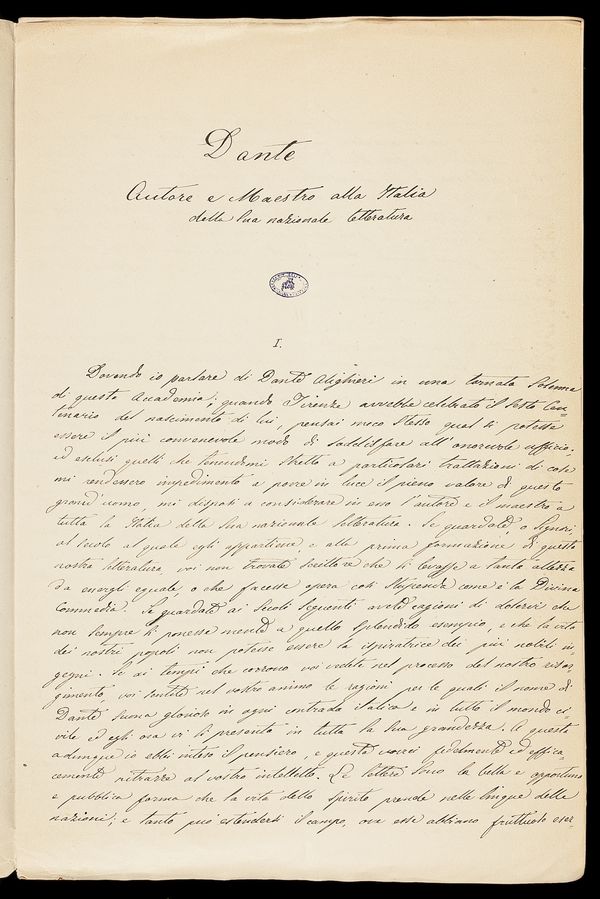 Dante
Autore e Maestro alla Italia
della sua nazionale letteratura
I.
Dovendo io parlare di Dante Alighieri in una tornata solenne
di questa Accademia; quando Firenze avrebbe celebrato il sesto Cen-
tenario del nascimento di lui, pensai meco stesso qual si potesse
essere il più convenevole modo di soddisfare all'onorevole ufficio;
ed esclusi quelli che tenendomi stretto a particolari trattazioni di cose
mi rendessero impedimento a porre in luce il pieno valore di questo
grand'uomo, mi disposi a considerare in esso l'autore e il maestro a
tutta la Italia della sua nazionale letteratura. Se guardate, o Signori,
al secolo al quale egli appartiene, e alla prima formazione di questa
nostra letteratura, voi non trovate scrittore che si levasse a tanta altezza
da energli eguale, o che facesse opera così stupenda come è la Divina
Commedia. Se guardate ai secoli seguenti avete cagioni di dolervi che
non sempre si ponesse mente a quello splendido esempio, e che la vita
dei nostri popoli non potesse essere la ispiratrice dei più nobili in-
gegni. Se ai tempi che corrono voi vedete nel processo del nostro risor-
gimento, voi sentite nel vostro animo le ragioni per le quali il nome di
Dante suona glorioso in ogni contrada italica e in tutto il mondo ci-
vile ed egli ora vi si presenta in tutta la sua grandezza. A questo
adunque io ebbi inteso il pensiero, e questo vorrei fedelmente ed effica-
cemente ritrarre al vostro intelletto. Le lettere sono la bella e opportuna
e pubblica forma che la vita dello spirito prende nelle lingue delle
nazioni; e tanto può estendersi il campo, ove esse abbiano fruttuoso eser-